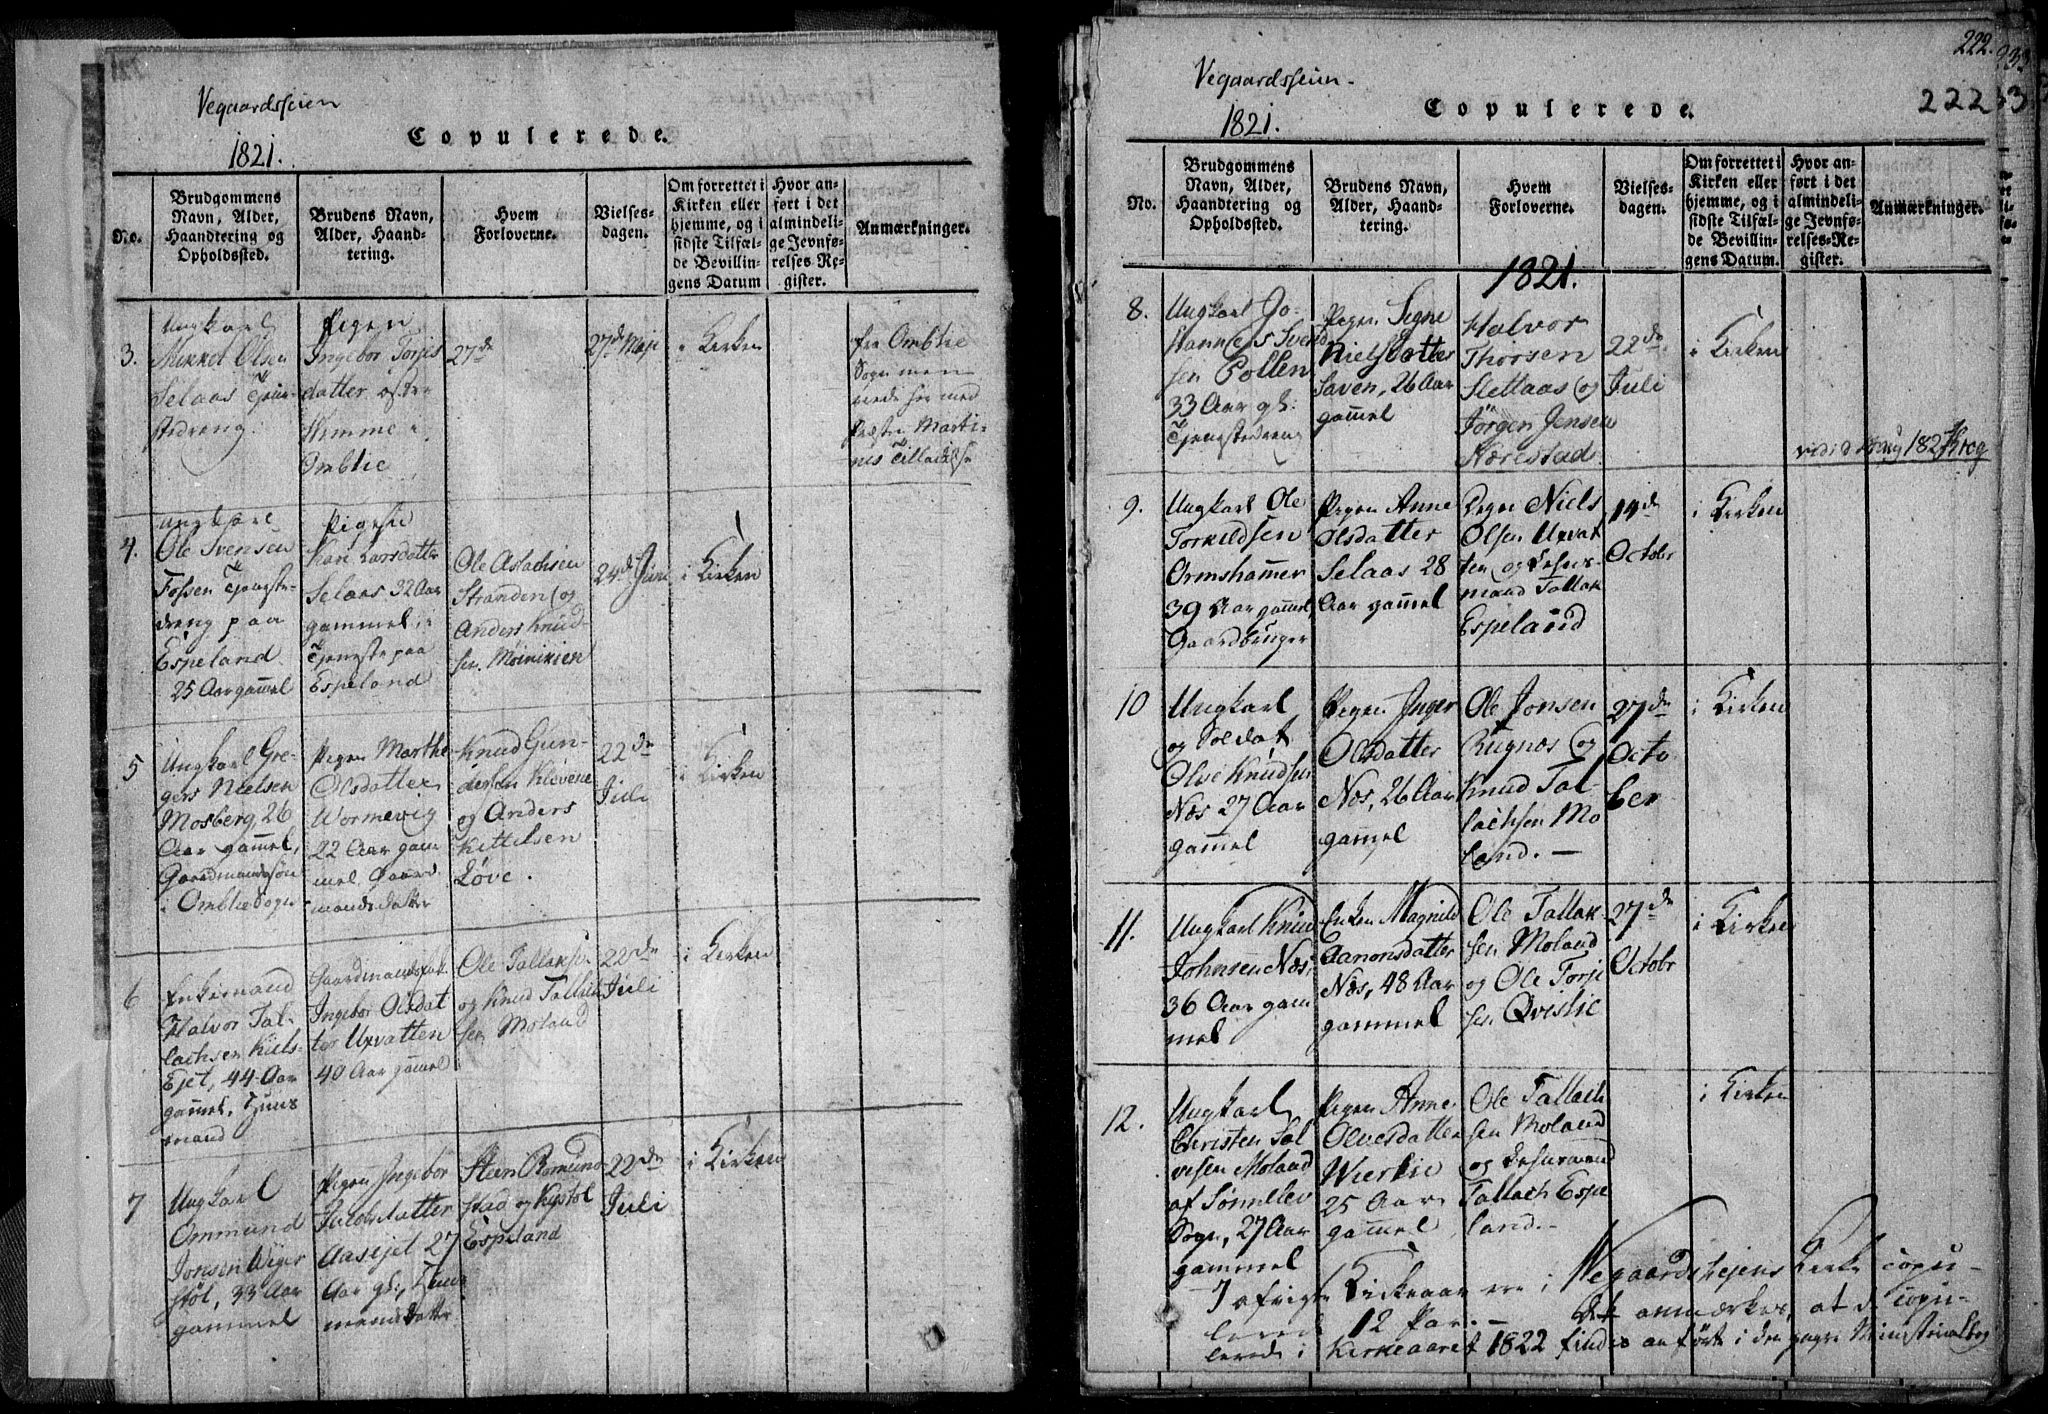 Vegaardsseien
1821.
Copulerede.
No.
Brudgommens
Navn, Alder,
Haandtering og
Opholdssted.
Brudens Navn,
Alder, Haand-
tering.
Hvem
Forloverne.
Vielses-
dagen.
Om forrettet i
Kirken eller
hjemme, og i
sidste Tilfæl-
de Bevillin-
gens Datum
Hvor an-
ført i det
almindeli-
ge Jevnfø-
relses-Re-
gister.
Anmærkninger.
3.
Ungkarl
Olsen
Selaas
Pigen
Ingebor Torjes
datter
Omblie
27de
27de Maji
i Kirken
fra Omblie
Sogn men
viede her med
4.
Ungkarl
Ole Svensen
Fossen Tjeneste-
dreng paa
Espeland
25 Aar gammel
Pigen
Kari Larsdatter
Selaas 32 Aar
gammel i
Tjeneste paa
Espeland
Ole Aslachsen
Stranden og
Anders Knud-
sen Moinikien
24de Juni
i Kirken
5
Ungkarl Gre-
gers Nielsen
Mosberg, 26
Aar gammel,
Gaardmandssøn
i Omblie Sogn
Pigen Marthe
Olsdatter
Wormevig
22 Aar gam
mel Gaard
mandsdatter
Knud Gun-
dersen Klevene
og Anders
Kittelsen
Løve.
22de
Juli
i Kirken
6
Enkemand
Halvor Tal-
lachsen Kiels-
Ejet, 44 Aar
gammel, Huus
mand
Ingebor Olsdat
ter Uxvatten
40 Aar gammel
Ole Tallaksen
og Knud Tallach
sen Moland
22de
Juli
i Kirken
7
Ungkarl
Ommund
Jonsen Wiger
støl, 33 Aar
gammel
Pigen Ingebor
Jacobsdatter
Aasejet 27
Aar gl., Huus
mands Datter
Steen Romund
stad og Kistol
Espeland
22de
Juli
i Kirken
222.
Vegaardsseien
1821.
Copulerede.
222
No.
Brudgommens
Navn, Alder,
Haandtering og
Opholdssted.
Brudens Navn,
Alder, Haand-
tering.
Hvem
Forloverne.
Vielses-
dagen.
Om forrettet i
Kirken eller
hjemme, og i
sidste Tilfæl-
de Bevillin-
gens Datum.
Hvor an-
ført i det
almindeli-
ge Jevnfø-
relses-Re-
gister.
Anmærkninger.
1821.
8.
Ungkarl Jo-
hannes Svend
sen Pollen
33 Aar gl:
Tjenestedreng
Pigen Signe
Nielsdatter
Saven, 26 Aar
gammel
Halvor
Thorsen
Slettaas og
Jörgen Jensen
Nærestad
22de
Juli
i Kirken
9.
Ungkarl Ole
Torkildsen
Ormshammer
39 Aar gammel,
Gaardbruger
Pigen Anne
Olsdatter
Selaas 28
Aar gammel
Niels
Olsen Uxvat
ten og Lehns-
mand Tallak
Espeland
14de
Octobr
i Kirken
10
Ungkarl
og Soldat
Olve Knudsen
Næs 27 Aar
gammel
Pigen Inger
Olsdatter
Næs, 26 Aar
gammel
Ole Jonsen
Rugnæs og
Knud Tal-
lachsen Mo
land. —
27de
Octo
ber
i Kirken
11.
Ungkarl Knud
Johnsen Næs,
36 Aar gam
mel
Enken Magnild
Aanonsdatter
Næs, 48 Aar
gammel
Ole Tallak
sen Moland
og Ole Torji
sen Qvislie
27de
Octobr
i Kirken
12.
Ungkarl
Christen Sal
vesen Moland
af Sønnelev
Sogn, 27 Aar
gammel
Pigen Anne
Olvesdatter
Wierlie
25 Aar
gammel
Ole Tallach
sen Moland
og Lehnsmand
Tallach Espe
land. —
i Kirken
I afvigte Kirkeaar ere i Wegaardshejens Kirke copu-
lerede 12 Par. — Det anmærkes, at de copu-
lerede i Kirkeaaret 1822 findes anførte i den nye Ministerialbog